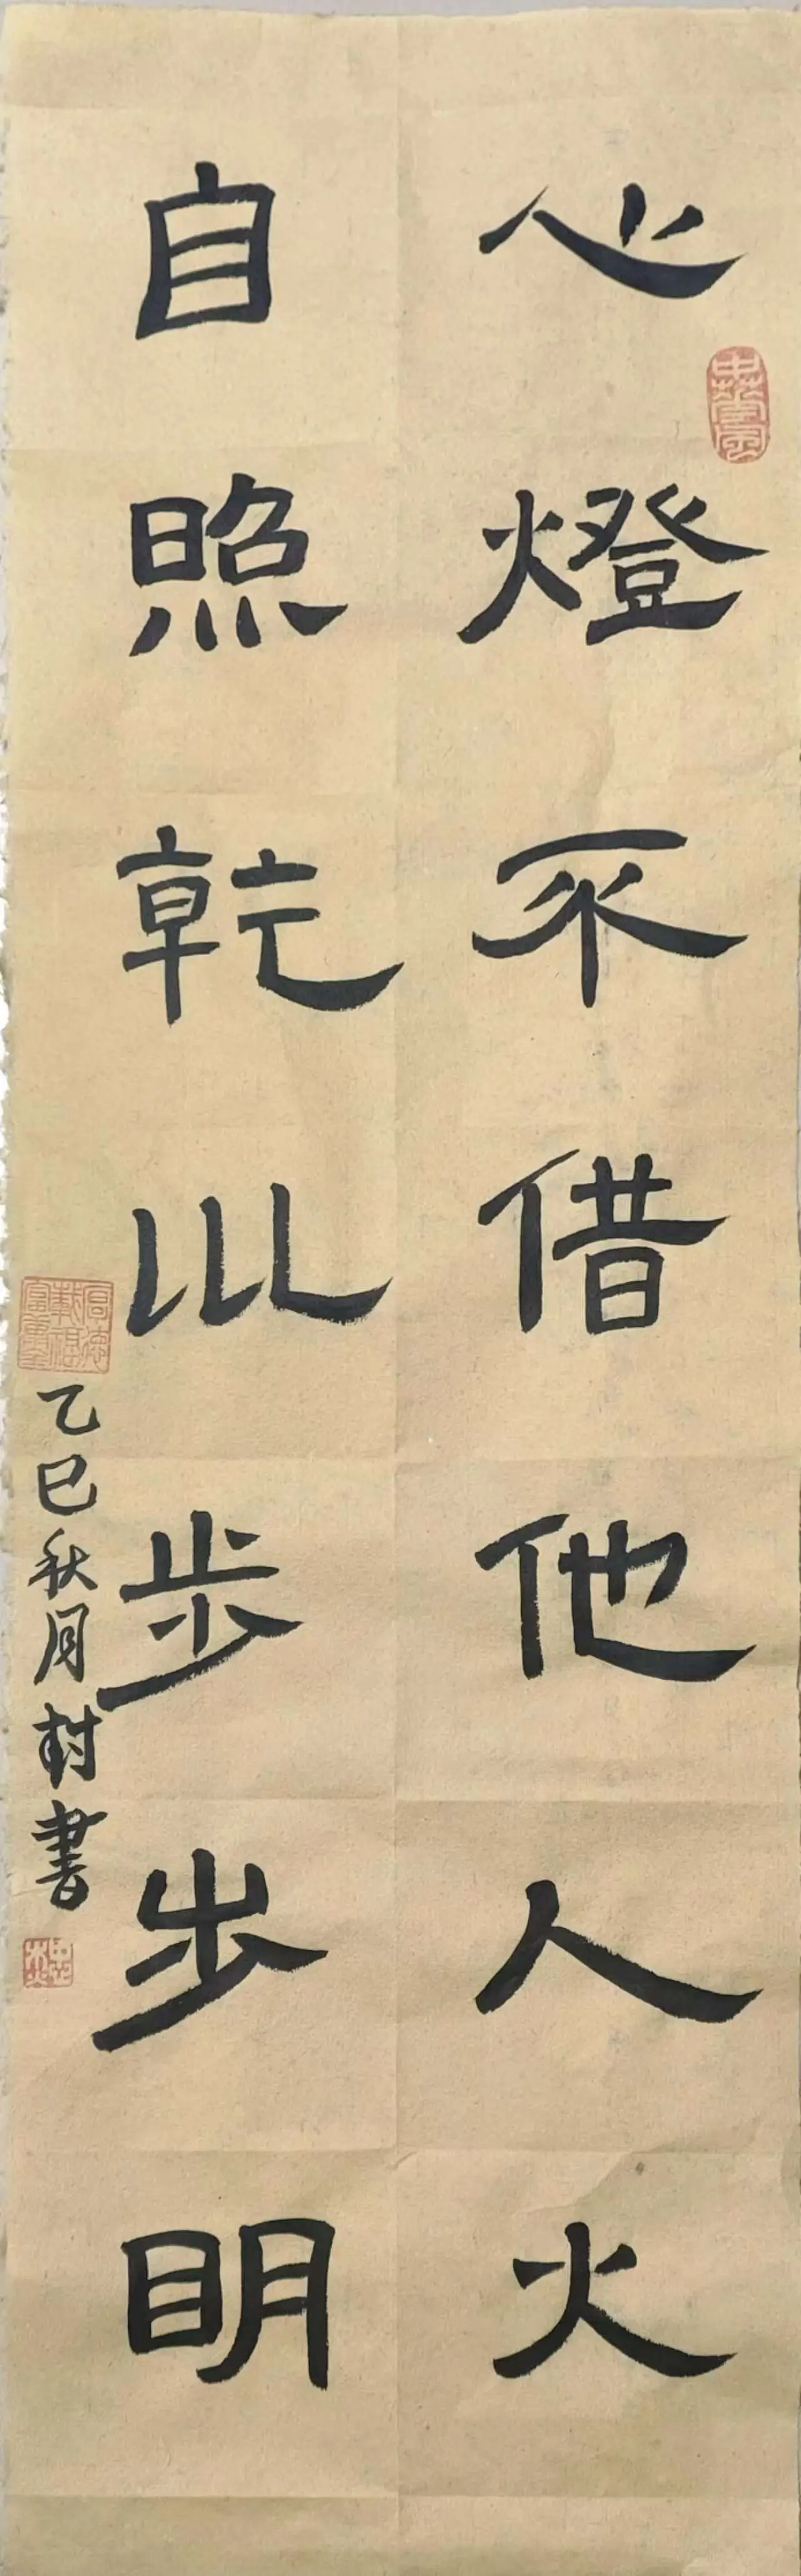 心燈不借他人火
自照乾巛步步明
乙巳秋月封書